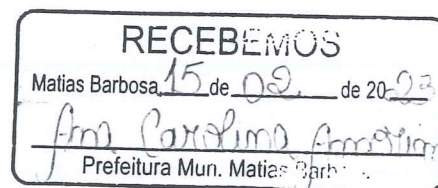 RECEBEMOS
Matias Barbosa, 15 de 02 de 2023
Ana Carolina
Prefeitura Mun. Matias Barb